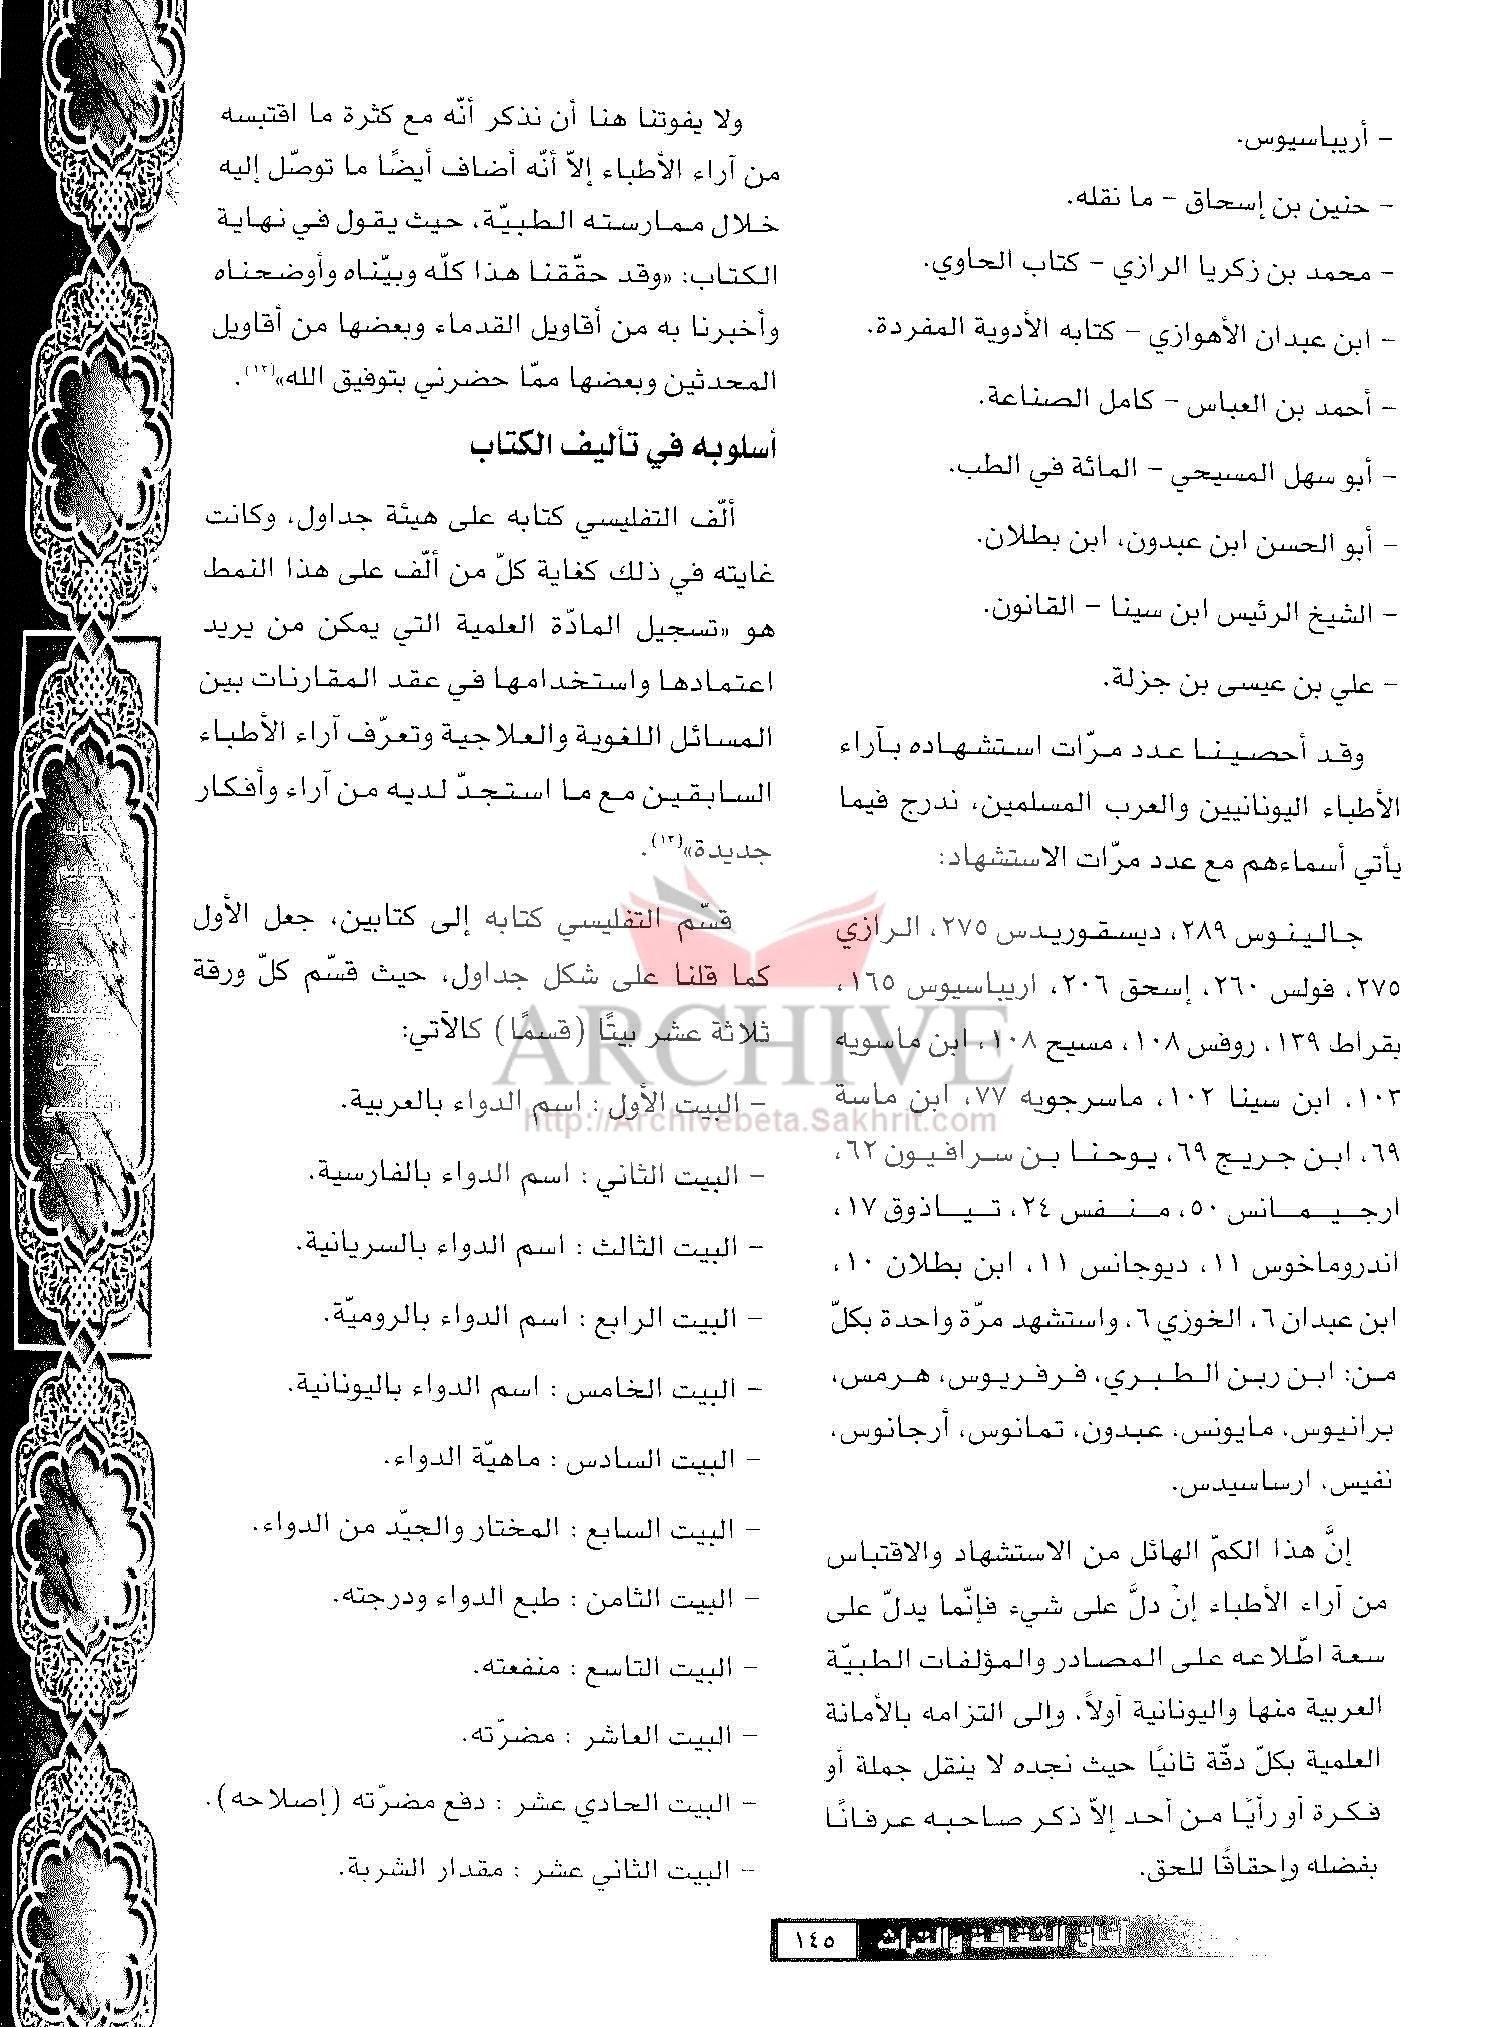 - أريباسيوس.
- حنين بن إسحاق - ما نقله.
- محمد بن زكريا الرازي - كتاب الحاوي.
- ابن عبدان الأهوازي - كتابه الأدوية المفردة.
- أحمد بن العباس - كامل الصناعة.
- أبو سهل المسيحي - المائة في الطب.
- أبو الحسن ابن عبدون، ابن بطلان.
- الشيخ الرئيس ابن سينا - القانون.
- علي بن عيسى بن جزلة.
وقد أحصينا عدد مرّات استشهاده بآراء
الأطباء اليونانيين والعرب المسلمين، ندرج فيما
يأتي أسماءهم مع عدد مرّات الاستشهاد:
جالينوس ٢٨٩، ديسقوريدس ٢٧٥، الرازي
٢٧٥، فولس ٢٦٠، إسحق ٢٠٦، اريباسيوس ١٦٥،
بقراط ١٣٩، روفس ١٠٨، مسيح ١٠٨، ابن ماسويه
١٠٣، ابن سينا ١٠٢، ماسرجويه ٧٧، ابن ماسة
٦٩، ابن جريج ٦٩، يوحنا بن سرافيون ٦٢،
ارجيمانس ٥٠، منفس ٢٤، تياذوق ١٧،
اندروماخوس ١١، ديوجانس ١١، ابن بطلان ١٠،
ابن عبدان ٦، الخوزي ٦، واستشهد مرّة واحدة بكلّ
من: ابن ربن الطبري، فرفريوس، هرمس،
برانيوس، مايونس، عبدون، تمانوس، أرجانوس،
نفيس، ارساسيدس.
إنَّ هذا الكمّ الهائل من الاستشهاد والاقتباس
من آراء الأطباء إنْ دلَّ على شيء فإنّما يدلّ على
سعة اطّلاعه على المصادر والمؤلفات الطبيّة
العربية منها واليونانية أولاً، وإلى التزامه بالأمانة
العلمية بكلّ دقّة ثانيًا حيث نجده لا ينقل جملة أو
فكرة أو رأيًا من أحد إلاّ ذكر صاحبه عرفانًا
بفضله وإحقاقًا للحق.
ولا يفوتنا هنا أن نذكر أنّه مع كثرة ما اقتبسه
من آراء الأطباء إلاّ أنّه أضاف أيضًا ما توصّل إليه
خلال ممارسته الطبيّة، حيث يقول في نهاية
الكتاب: «وقد حقّقنا هذا كلّه وبيّناه وأوضحناه
وأخبرنا به من أقاويل القدماء وبعضها من أقاويل
المحدثين وبعضها ممّا حضرني بتوفيق الله»(١٢).
أسلوبه في تأليف الكتاب
ألّف التفليسي كتابه على هيئة جداول، وكانت
غايته في ذلك كغاية كلّ من ألّف على هذا النمط
هو «تسجيل المادّة العلمية التي يمكن من يريد
اعتمادها واستخدامها في عقد المقارنات بين
المسائل اللغوية والعلاجية وتعرّف آراء الأطباء
السابقين مع ما استجدّ لديه من آراء وأفكار
جديدة»(١٣).
قسّم التفليسي كتابه إلى كتابين، جعل الأول
كما قلنا على شكل جداول، حيث قسّم كلّ ورقة
ثلاثة عشر بيتًا (قسمًا) كالآتي:
- البيت الأول : اسم الدواء بالعربية.
- البيت الثاني : اسم الدواء بالفارسية.
- البيت الثالث : اسم الدواء بالسريانية.
- البيت الرابع : اسم الدواء بالروميّة.
- البيت الخامس : اسم الدواء باليونانية.
- البيت السادس : ماهيّة الدواء.
- البيت السابع : المختار والجيّد من الدواء.
- البيت الثامن : طبع الدواء ودرجته.
- البيت التاسع : منفعته.
- البيت العاشر : مضرّته.
- البيت الحادي عشر : دفع مضرّته (إصلاحه).
- البيت الثاني عشر : مقدار الشربة.
ARCHIVE
http://Archivebeta.Sakhrit.com
آفاق الثقافة والتراث ١٤٥